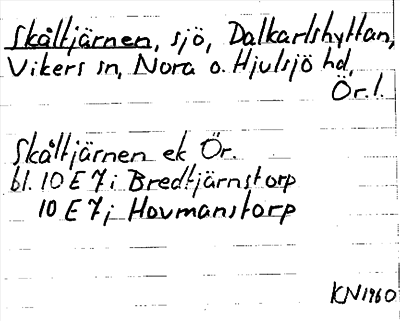 Skåltjärnen, sjö, Dalkarlshyttan,
Vikers sn, Nora o. Hjulsjö hd,
Ör. l.
Skåltjärnen ek Ör.
bl. 10 E 7 i Bredtjärnstorp
10 E 7 j Hovmanstorp
KN 1960